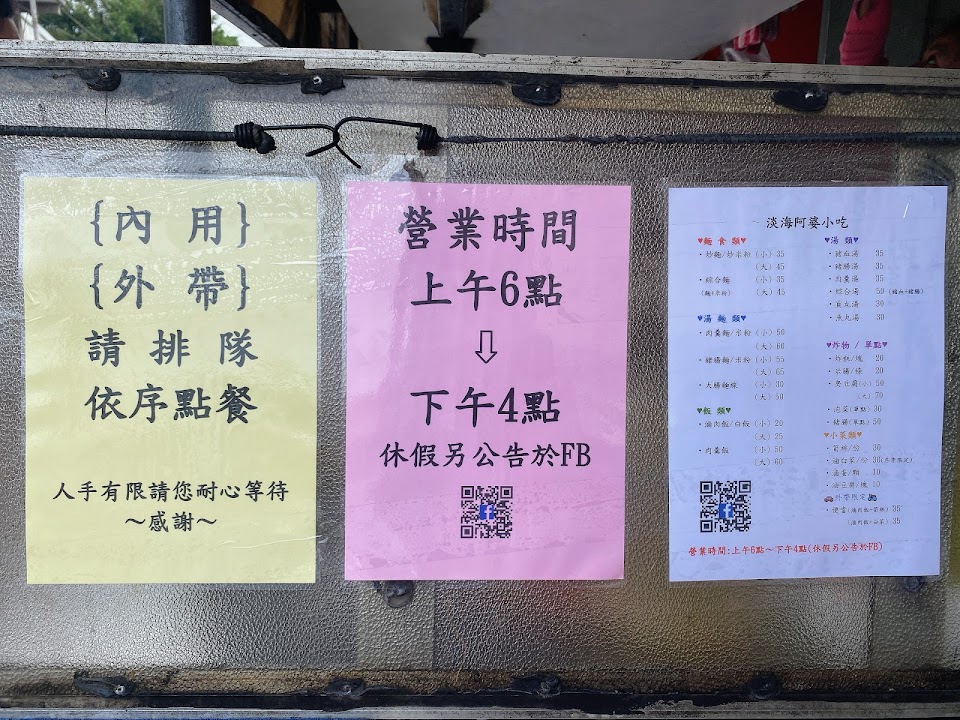 {內 用}
{外 帶}
請 排 隊
依序點餐
人手有限請您耐心等待
～感謝～
營業時間
上午6點
⇩
下午4點
休假另公告於FB
～ 淡海阿婆小吃
♥麵 食 類♥
・炒麵/炒米粉 (小) 35
(大) 45
・綜合麵 (小) 35
(麵+米粉) (大) 45
♥湯 麵 類♥
・肉羹麵/米粉 (小) 50
(大) 60
・豬腸麵/米粉 (小) 55
(大) 65
・大腸麵線 (小) 30
(大) 50
♥飯 類♥
・滷肉飯/白飯 (小) 20
(大) 25
・肉羹飯 (小) 50
(大) 60
♥湯 類♥
・豬血湯 35
・豬腸湯 35
・肉羹湯 35
・綜合湯 50 (豬血+豬腸)
・貢丸湯 30
・魚丸湯 30
♥炸物 / 單點♥
・炸粿/塊 20
・米腸/條 20
・臭豆腐(小) 50
(大) 70
・肉羹(單點) 30
・豬腸(單點) 50
♥小菜類♥
・筍絲/份 30
・滷白菜/份 30(冬季限定)
・滷蛋/顆 10
・油豆腐/塊 10
外帶限定
・便當(滷肉飯+筍絲) 35
(滷肉飯+白菜) 35
營業時間:上午6點～下午4點(休假另公告於FB)